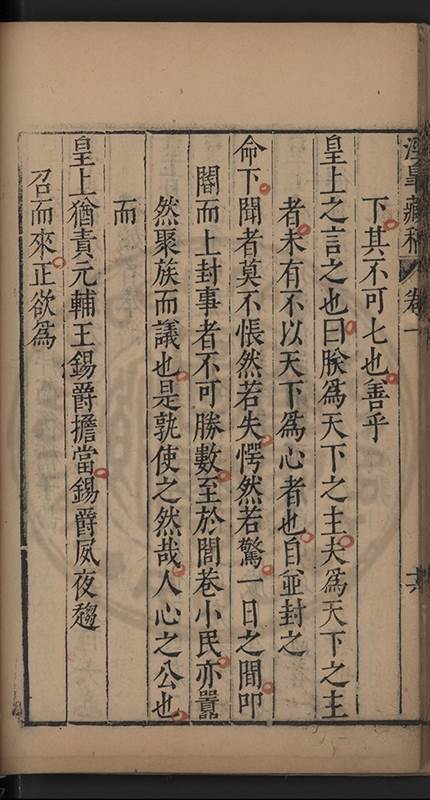 涇皋藏稿 卷一 十六
下其不可七也善乎
皇上之言之也曰朕爲天下之主夫爲天下之主
者未有不以天下爲心者也自並封之
命下聞者莫不悵然若失愕然若驚一日之間叩
閽而上封事者不可勝數至於閭巷小民亦囂囂
然聚族而議也是孰使之然哉人心之公也
而
皇上猶責元輔王錫爵擔當錫爵夙夜趨
召而來正欲爲